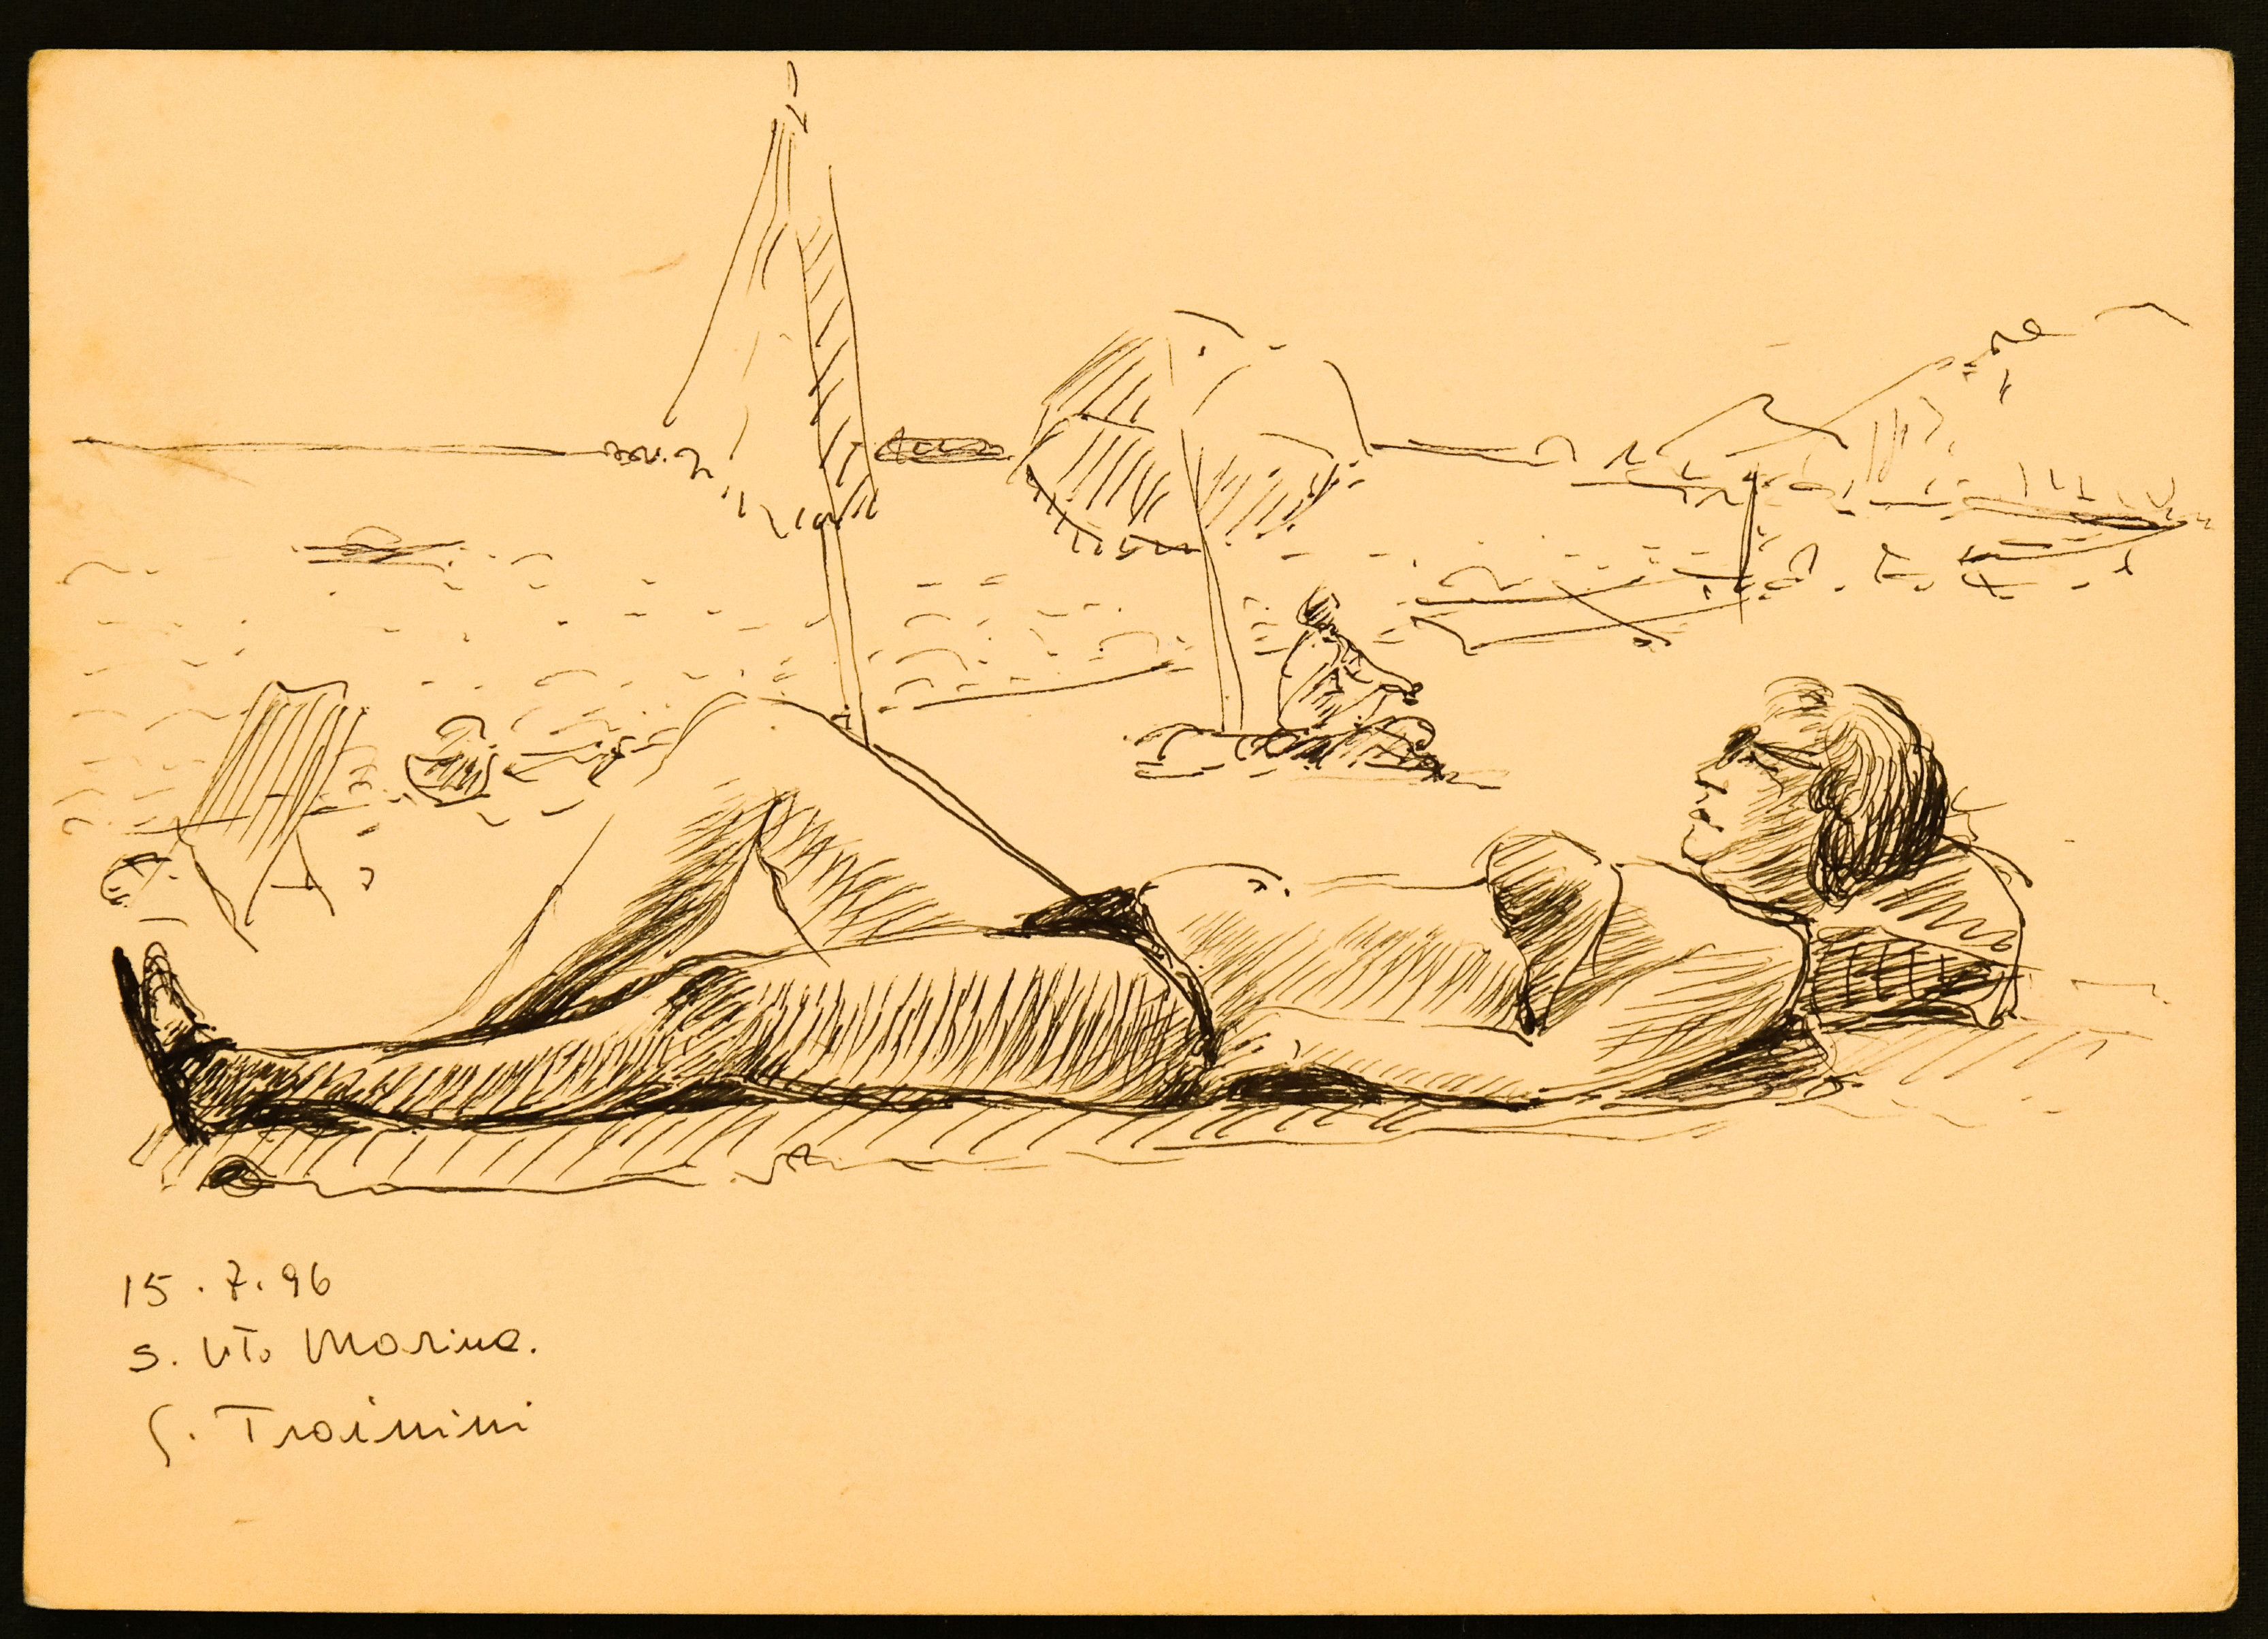 15.7.96
S. Vito Marina.
G. Traimini